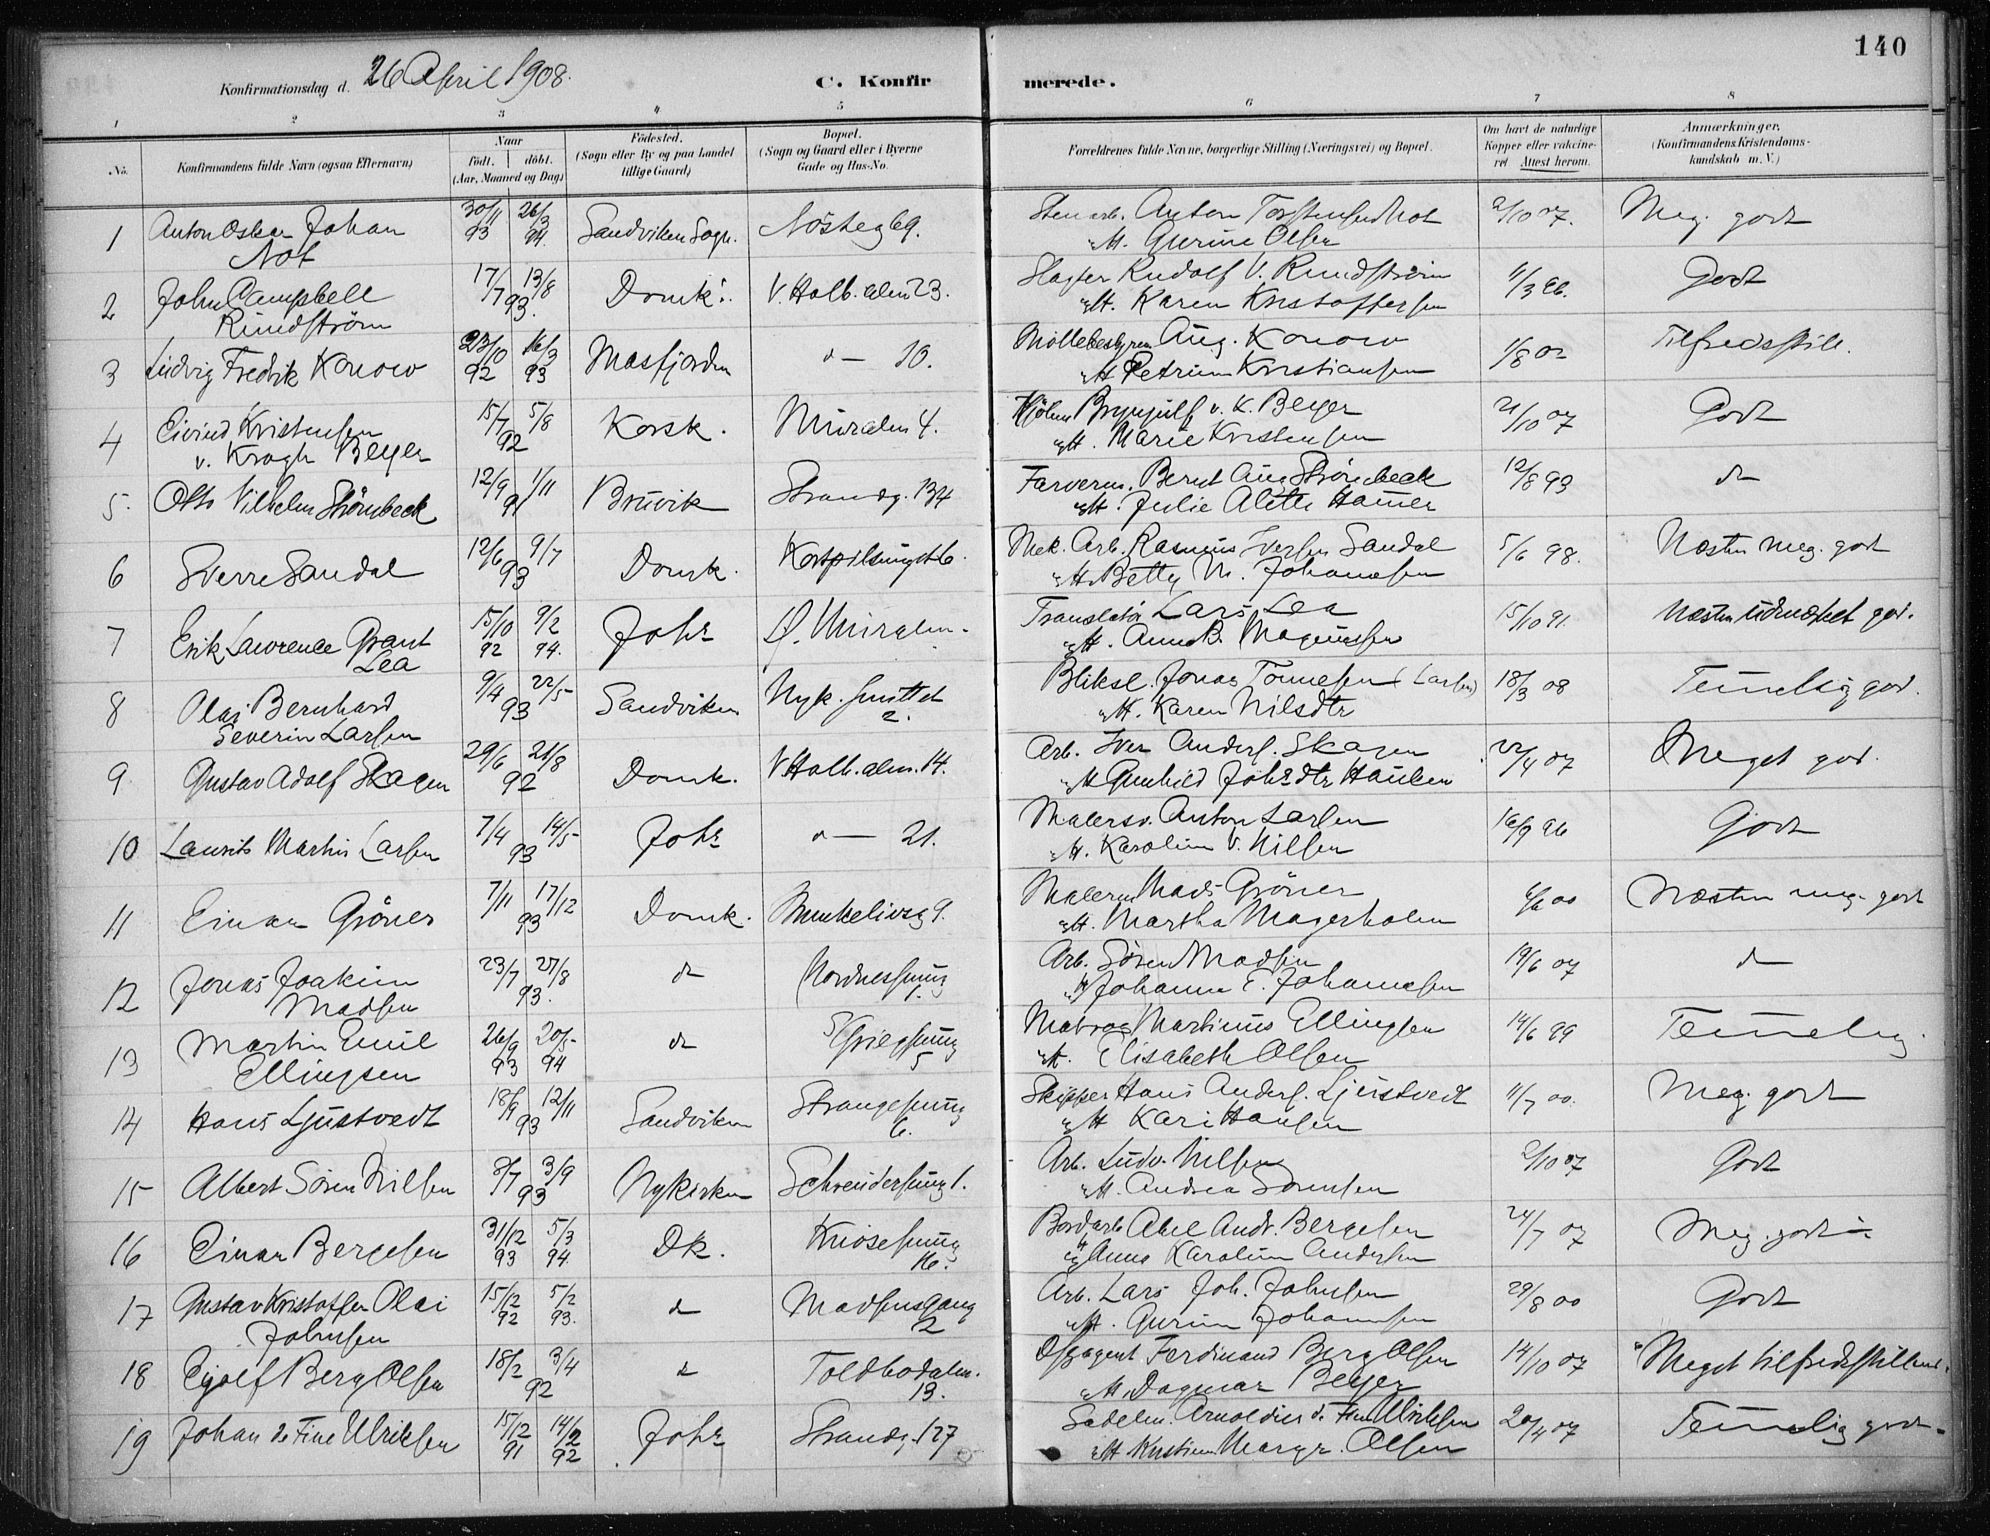 140
Konfirmationsdag d. 26 April 1908.
C. Konfir merede.
1 2 3 4 5 6 7 8
No.
Konfirmandens fulde Navn (ogsaa Efternavn)
Naar
födt. döbt.
(Aar, Maaned og Dag)
Födested.
(Sogn eller By og paa Landet
tillige Gaard)
Bopæl.
(Sogn og Gaard eller i Byerne
Gade og Hus-No.
Forældrenes fulde Navne, borgerlige Stilling (Næringsvei) og Bopæl.
Om havt de naturlige
Kopper eller vaksine-
ret. Attest herom.
Anmærkninger.
(Konfirmandens Kristendoms-
kundskab m. V.)
1 Anton Oskar Johan 30/11 93 26/3 94. Sandviken Sogn. Nösteg 69. Stenarb. Anton Torstensen Not 2/10 07. Meg. godt
Not & H. Gurine Olsen
2 John Campbell 17/7 13/8 93. Domk. V. Holb. alm 23. Slagter Rudolf V. Rundström 11/3 96. Godt
Rundström & H. Karen Kristoffersen
3 Ludvig Fredrik Konow 23/10 92 16/3 93 Masfjorden do — 10. Möllebestyrer Aug. Konow 1/8 02 Tilfredsstill.
& H. Petrine Kristiansen
4 Eivind Kristensen 15/7 5/8 92 Korsk. Muralm 4. Kjöbm Brynjulf v. K. Beyer 21/10 07 Godt
v. Krogh Beyer & H. Marie Kristensen
5. Otto Vilhelm Strömbeck 12/9 1/11 91 Bruvik Strandg. 134 Farverm. Bernt Aug Strömbeck 12/8 93 do
& H. Julie Alette Hamer
6 Sverre Sandal 12/6 9/7 93 Domk. Mek. Arb. Rasmus Iversen Sandal 5/6 98. Næsten meg. godt
& H. Betty M. Johannesen
7 Erik Lawrence Grant 15/10 92 9/2 94. Johs Ö. Muralm. Translatör Lars Lea 15/10 91. Næsten udmærket god.
Lea & H. Anna B. Magnussen
8 Olaj Bernhard 9/4 22/5 93 Sandviken Nyk. smittet Bliksl. Jonas Tönnesen (Larsen) 18/3 08 Temelig god.
Severin Larsen 2. & H. Karen Nilsdtr
9 Gustav Adolf Skagen 29/6 21/8 92 Domk. V Holb. alm. 14. Arb. Iver Anders. Skagen 22/4 07 Meget god.
& H Gunhild Johsdtr Hauken
10 Laurits Martin Larsen 7/4 14/5 93 Johs do — 21. Malersv. Anton Larsen 16/9 96 Godt
& H. Karoline V. Nilsen
11 Einar Gröner 7/11 17/12 93 Domk. Munkelivsg 9. Malerm Mads Gröner 6/6 00 Næsten meg. godt
& H. Martha Magerholm
12 Jonas Joakim 23/7 27/8 93. do Nordnessmug Arb. Sören Madsen 19/6 07 do
Madsen 1. & H Johanne E. Johannesen
13 Martin Emil 26/9 93 20/5 94 do Griegsmug Matros Martinus Ellingsen 14/6 99 Temelig
Ellingsen 5 & H. Elisabeth Olsen
14 Hans Ljustvedt 18/9 12/11 93 Sandviken Strangesmug Skipper Hans Anders. Ljustvedt 11/7 00. Meg. godt
6. & H Kari Hansen
15 Albert Sören Nilsen 3/7 3/9 93 Nykirken Schreudersmug 1. Arb. Ludv. Nilsen 2/10 07 Godt
& H. Andrea Sörensen
16 Einar Bergesen 31/12 93 5/3 94. Dk. Knösesmug Bordarb Abel Andr. Bergesen 24/7 07 Meg. godt
16. & H Anna Karoline Andersen
17 Gustav Kristoffer Olai 15/12 92 5/2 93. do Madsensgang Arb. Lars Joh. Johnsen 29/8 00 Godt
Johnsen 2 & H. Gurine Johannesen
18 Eyolf Berg Olsen 18/2 3/4 92 do Toldbodalm. Dspagent Ferdinand Berg Olsen 14/10 07 Meget tilfredsstillend.
13. & H. Dagmar Beyer
19 Johan de Fine Ulriksen 15/12 91 14/2 92 Johs Strandg. 127 Sadelm. Arnoldus d. Fine Ulriksen 20/4 07 Temelig godt.
& H Kristine Margr. Olsen